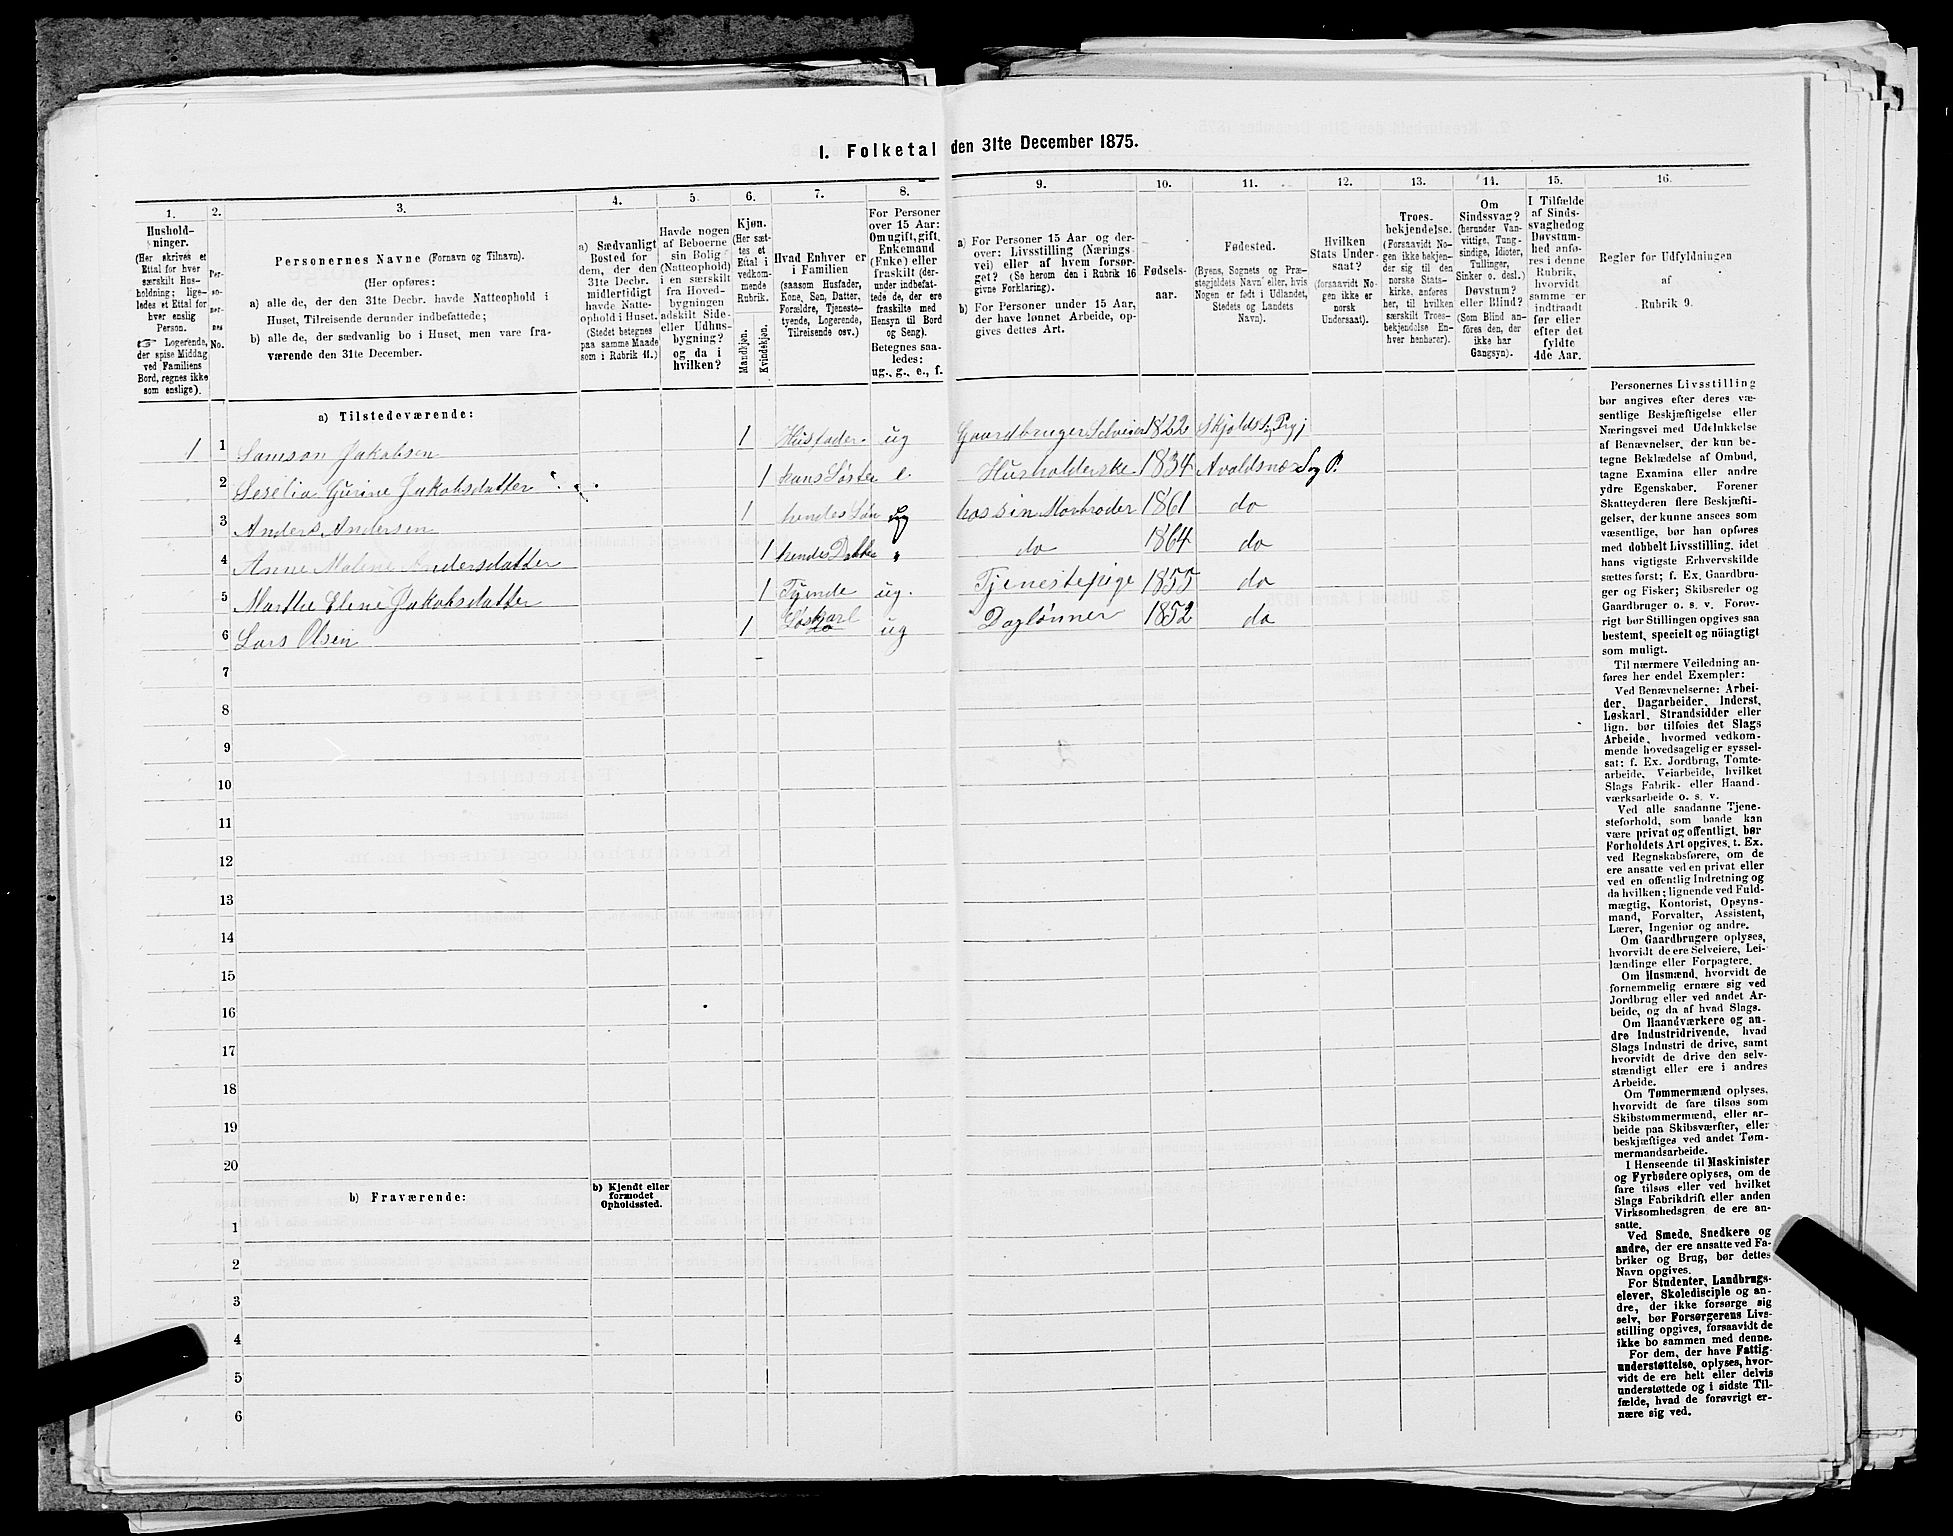 1. Folketal den 31te December 1875.
1.
Hushold-
ninger.
(Her skrives et
Ettal for hver
særskilt Hus-
holdning; lige-
ledes et Ettal for
hver enslig
Person.
☞ Logerende,
der spise Middag
ved Familiens
Bord, regnes ikke
som enslige).
2.
Per-
so-
ner-
nes
No.
3.
Personernes Navne (Fornavn og Tilnavn).
(Her opføres:
a) alle de, der den 31te Decbr. havde Natteophold i
Huset, Tilreisende derunder indbefattede;
b) alle de, der sædvanlig bo i Huset, men vare fra-
værende den 31te December.
4.
a) Sædvanligt
Bosted for
dem, der den
31te Decbr.
midlertidigt
havde Natte-
ophold i Huset.
(Stedet betegnes
paa samme Maade
som i Rubrik 11.)
5.
Havde nogen
af Beboerne
sin Bolig
(Natteophold)
i en særskilt
fra Hoved-
bygningen
adskilt Side-
eller Udhus-
bygning?
og da i
hvilken?
6.
Kjøn.
(Her sæt-
tes et
Ettal i
vedkom-
mende
Rubrik.
Mandkjøn.
Kvindekjøn.
7.
Hvad Enhver er
i Familien
(saasom Husfader,
Kone, Søn, Datter,
Forældre, Tjeneste-
tyende, Logerende,
Tilreisende osv.)
8.
For Personer
over 15 Aar:
Om ugift, gift,
Enkemand
(Enke) eller
fraskilt (der-
under indbefat-
tede de, der ere
fraskilte med
Hensyn til Bord
og Seng).
Betegnes saa-
ledes:
ug., g., e., f.
9.
a) For Personer 15 Aar og der-
over: Livsstilling (Nærings-
vei) eller af hvem forsør-
get? (Se herom den i Rubrik 16
givne Forklaring).
b) For Personer under 15 Aar,
der have lønnet Arbeide, op-
gives dettes Art.
10.
Fødsels-
aar.
11.
Fødested.
(Byens, Sognets og Præ-
stegjeldets Navn eller, hvis
Nogen er født i Udlandet,
Stedets og Landets
Navn).
12.
Hvilken
Stats Under-
saat?
(forsaavidt No-
gen ikke er
norsk
Undersaat).
13.
Troes-
bekjendelse.
(Forsaavidt No-
gen ikke bekjen-
der sig til den
norske Stats-
kirke, anføres
her, til hvilken
særskilt Troes-
bekjendelse En-
hver henhører).
14.
Om
Sindssvag?
(herunder Van-
vittige, Tung-
sindige, Idioter,
Tullinger,
Sinker o. desl.)
Døvstum?
eller Blind?
(Som Blind an-
føres den, der
ikke har
Gangsyn).
15.
I Tilfælde
af Sinds-
svaghed og
Døvstum-
hed anfø-
res i denne
Rubrik,
hvorvidt
samme er
indtraadt
før eller
efter det
fyldte
4de Aar.
16.
Regler for Udfyldningen
af
Rubrik 9.
a) Tilstedeværende:
1 1 Samson Jakobsen 1 Husfader ug Gaardbruger Selveier 1822 Skjolds
2 Seselia Gurine Jakobsdatter 1 hans Søster e Husholderske 1834 Avaldsnes Sog P.
3 Anders Andersen 1 hendes Søn ug hos sin Morbroder 1861 do
4 Anne Malene Andersdatter 1 hendes Datter " do 1864 do
5 Marthe Elene Jakobsdatter 1 Tyende ug. Tjenestepige 1855 do
6 Lars Olsen 1 Løskarl do ug Daglønner 1852 do
7
8
9
10
11
12
13
14
15
16
17
18
19
20
b) Fraværende:
b) Kjendt eller
formodet
Opholdssted.
1
2
3
4
5
6
Personernes Livsstilling
bør angives efter deres væ-
sentlige Beskjæftigelse eller
Næringsvei med Udelukkelse
af Benævnelser, der kun be-
tegne Beklædelse af Ombud,
tagne Examina eller andre
ydre Egenskaber. Forener
Skatteyderen flere Beskjæfti-
gelser, der kunne ansees som
væsentlige, bør han opføres
med dobbelt Livsstilling, idet
hans vigtigste Erhvervskilde
sættes først; f. Ex. Gaardbru-
ger og Fisker; Skibsreder og
Gaardbruger o. s. v. Forøv-
rigt bør Stillingen opgives saa
bestemt, specielt og nöiagtigt
som muligt.
Til nærmere Veiledning an-
føres her endel Exempler:
Ved Benævnelserne: Arbei-
der, Dagarbeider, Inderst,
Løskarl, Strandsidder eller
lign. bør tilføies det Slags
Arbeide, hvormed vedkom-
mende hovedsagelig er syssel-
sat; f. Ex. Jordbrug, Tomte-
arbeide, Veiarbeide, hvilket
Slags Fabrik- eller Haand-
værksarbeide o. s. v.
Ved alle saadanne Tjene-
steforhold, som baade kan
være privat og offentligt, bør
Forholdets Art opgives, t. Ex.
ved Regnskabsførere, om de
ere ansatte ved en privat eller
ved en offentlig Indretning og
da hvilken; lignende ved Fuld-
mægtig, Kontorist, Opsyns-
mand, Forvalter, Assistent,
Lærer, Ingeniør og andre.
Om Gaardbrugere oplyses,
hvorvidt de ere Selveiere, Lei-
lændinge eller Forpagtere.
Om Husmænd, hvorvidt de
fornemmelig ernære sig ved
Jordbrug eller ved andet Ar-
beide, og da af hvad Slags.
Om Haandværkere og an-
dre Industridrivende, hvad
Slags Industri de drive, samt
hvorvidt de drive den selv-
stændigt eller ere i andres
Arbeide.
Om Tømmermænd oplyses,
hvorvidt de fare tilsøs som
Skibstømmermænd, eller ar-
beide paa Skibsværfter, eller
beskjæftiges ved andet Tøm-
mermandsarbeide.
I Henseende til Maskinister
og Fyrbødere oplyses, om de
fare tilsøs eller ved hvilket
Slags Fabrikdrift eller anden
Virksomhedsgren de ere an-
satte.
Ved Smede, Snedkere og
andre, der ere ansatte ved Fa-
briker og Brug, bør dettes
Navn opgives.
For Studenter, Landbrugs-
elever, Skoledisciple og an-
dre, der ikke forsørge sig
selv, bør Forsørgerens Livs-
stilling opgives, forsaavidt de
ikke bo sammen med denne.
For dem, der have Fattig-
understøttelse, oplyses, hvor-
vidt de ere helt eller delvis
understøttede og i sidste Til-
fælde, hvad de forøvrigt er-
nære sig ved.